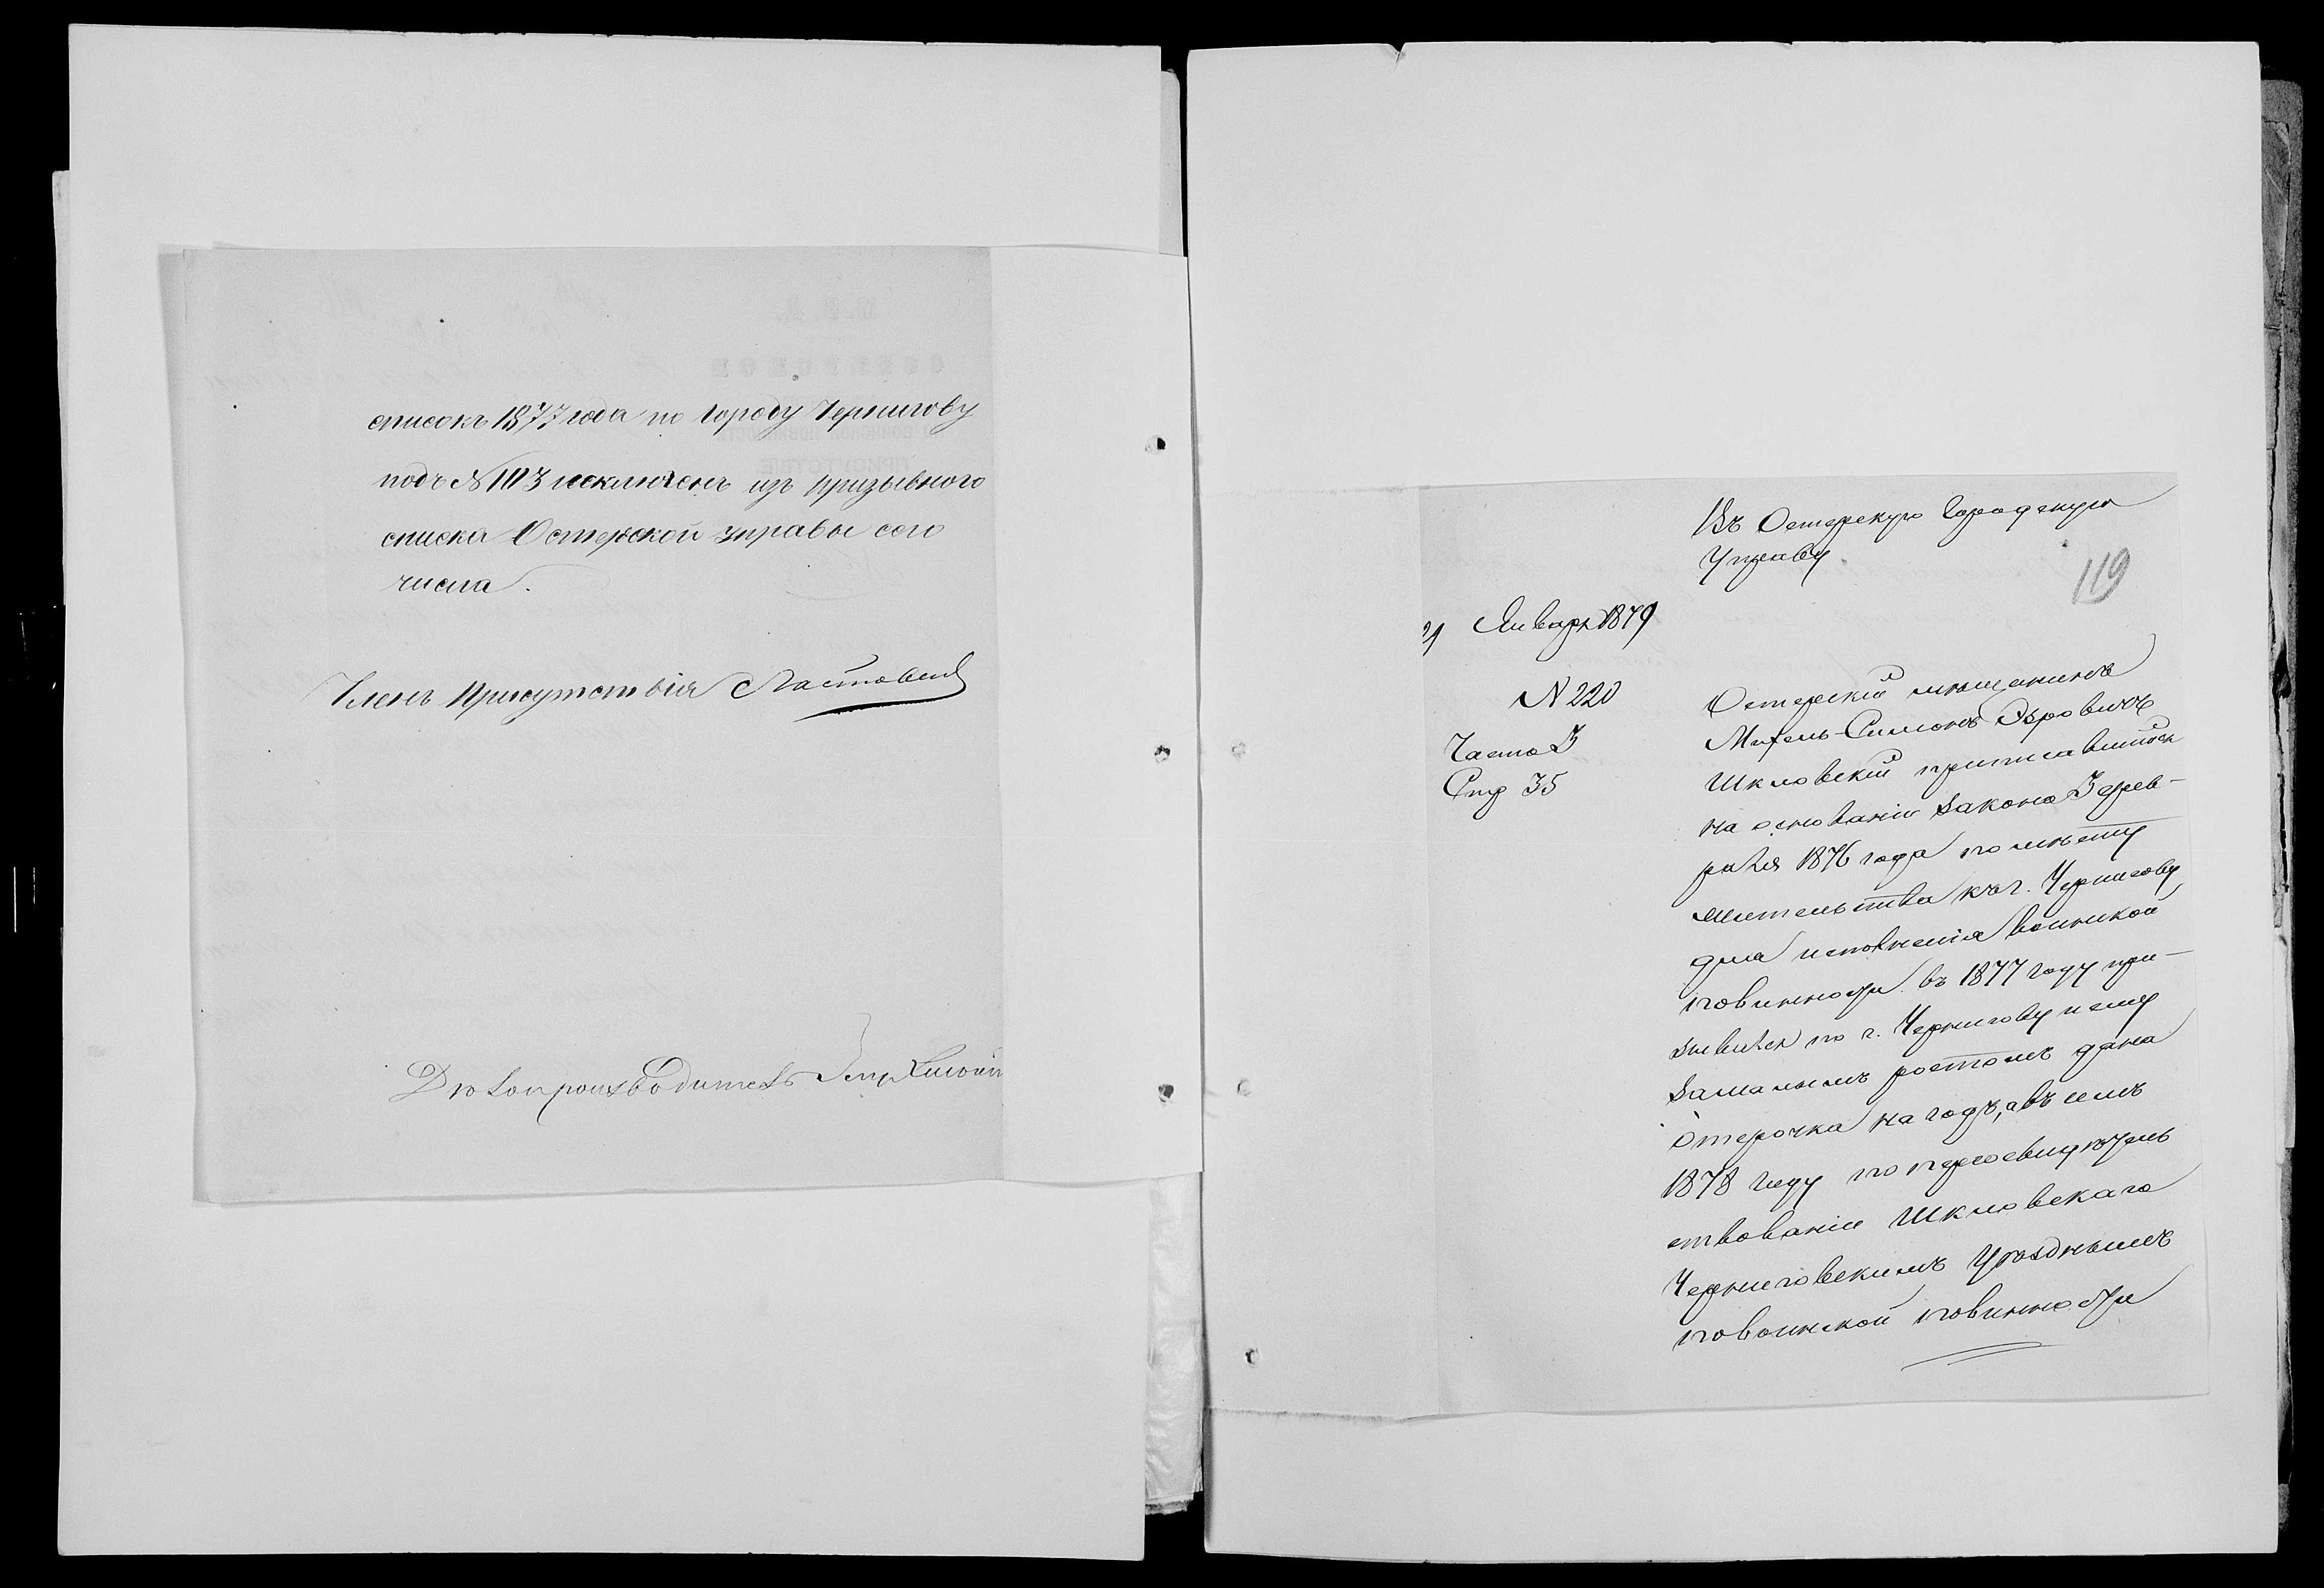 списокъ 1877 года по городу Чернигову
подъ № 1113 исключенъ изъ призывного
списка Остерской управы сего
числа.
Членъ Присутствія Ластовскій
Дѣлопроизводитель
Въ Остерскую Городскую
Управу.
119
21 Январь 1879
N 220
Часть 3
Стр 35
Остерскій мѣщанинъ
Михель-Симонъ
Шкловскій приписавшійся
на основаніи закона 3 февраля
1876 года по мѣсту
жительства къ г. Чернигову
для исполненія воинской
повинности въ 1877 году при-
зывался по г. Чернигову и ему
за малымъ ростомъ дана
отсрочка на годъ, а въ семъ
1878 году по переосвидѣтель
ствованіи Шкловскаго
Черниговскимъ Уѣзднымъ
по воинской повинности